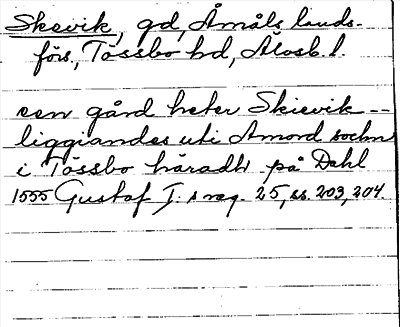 Skevik, gd, Åmåls lands-
förs, Tössbo hd, Älvsb. l.
een gård heter Skievik --
liggiandes uti Åmord sochn
i Tössbo häradh på Dahl
1555 Gustaf I:s reg. 25, ss. 203, 204.